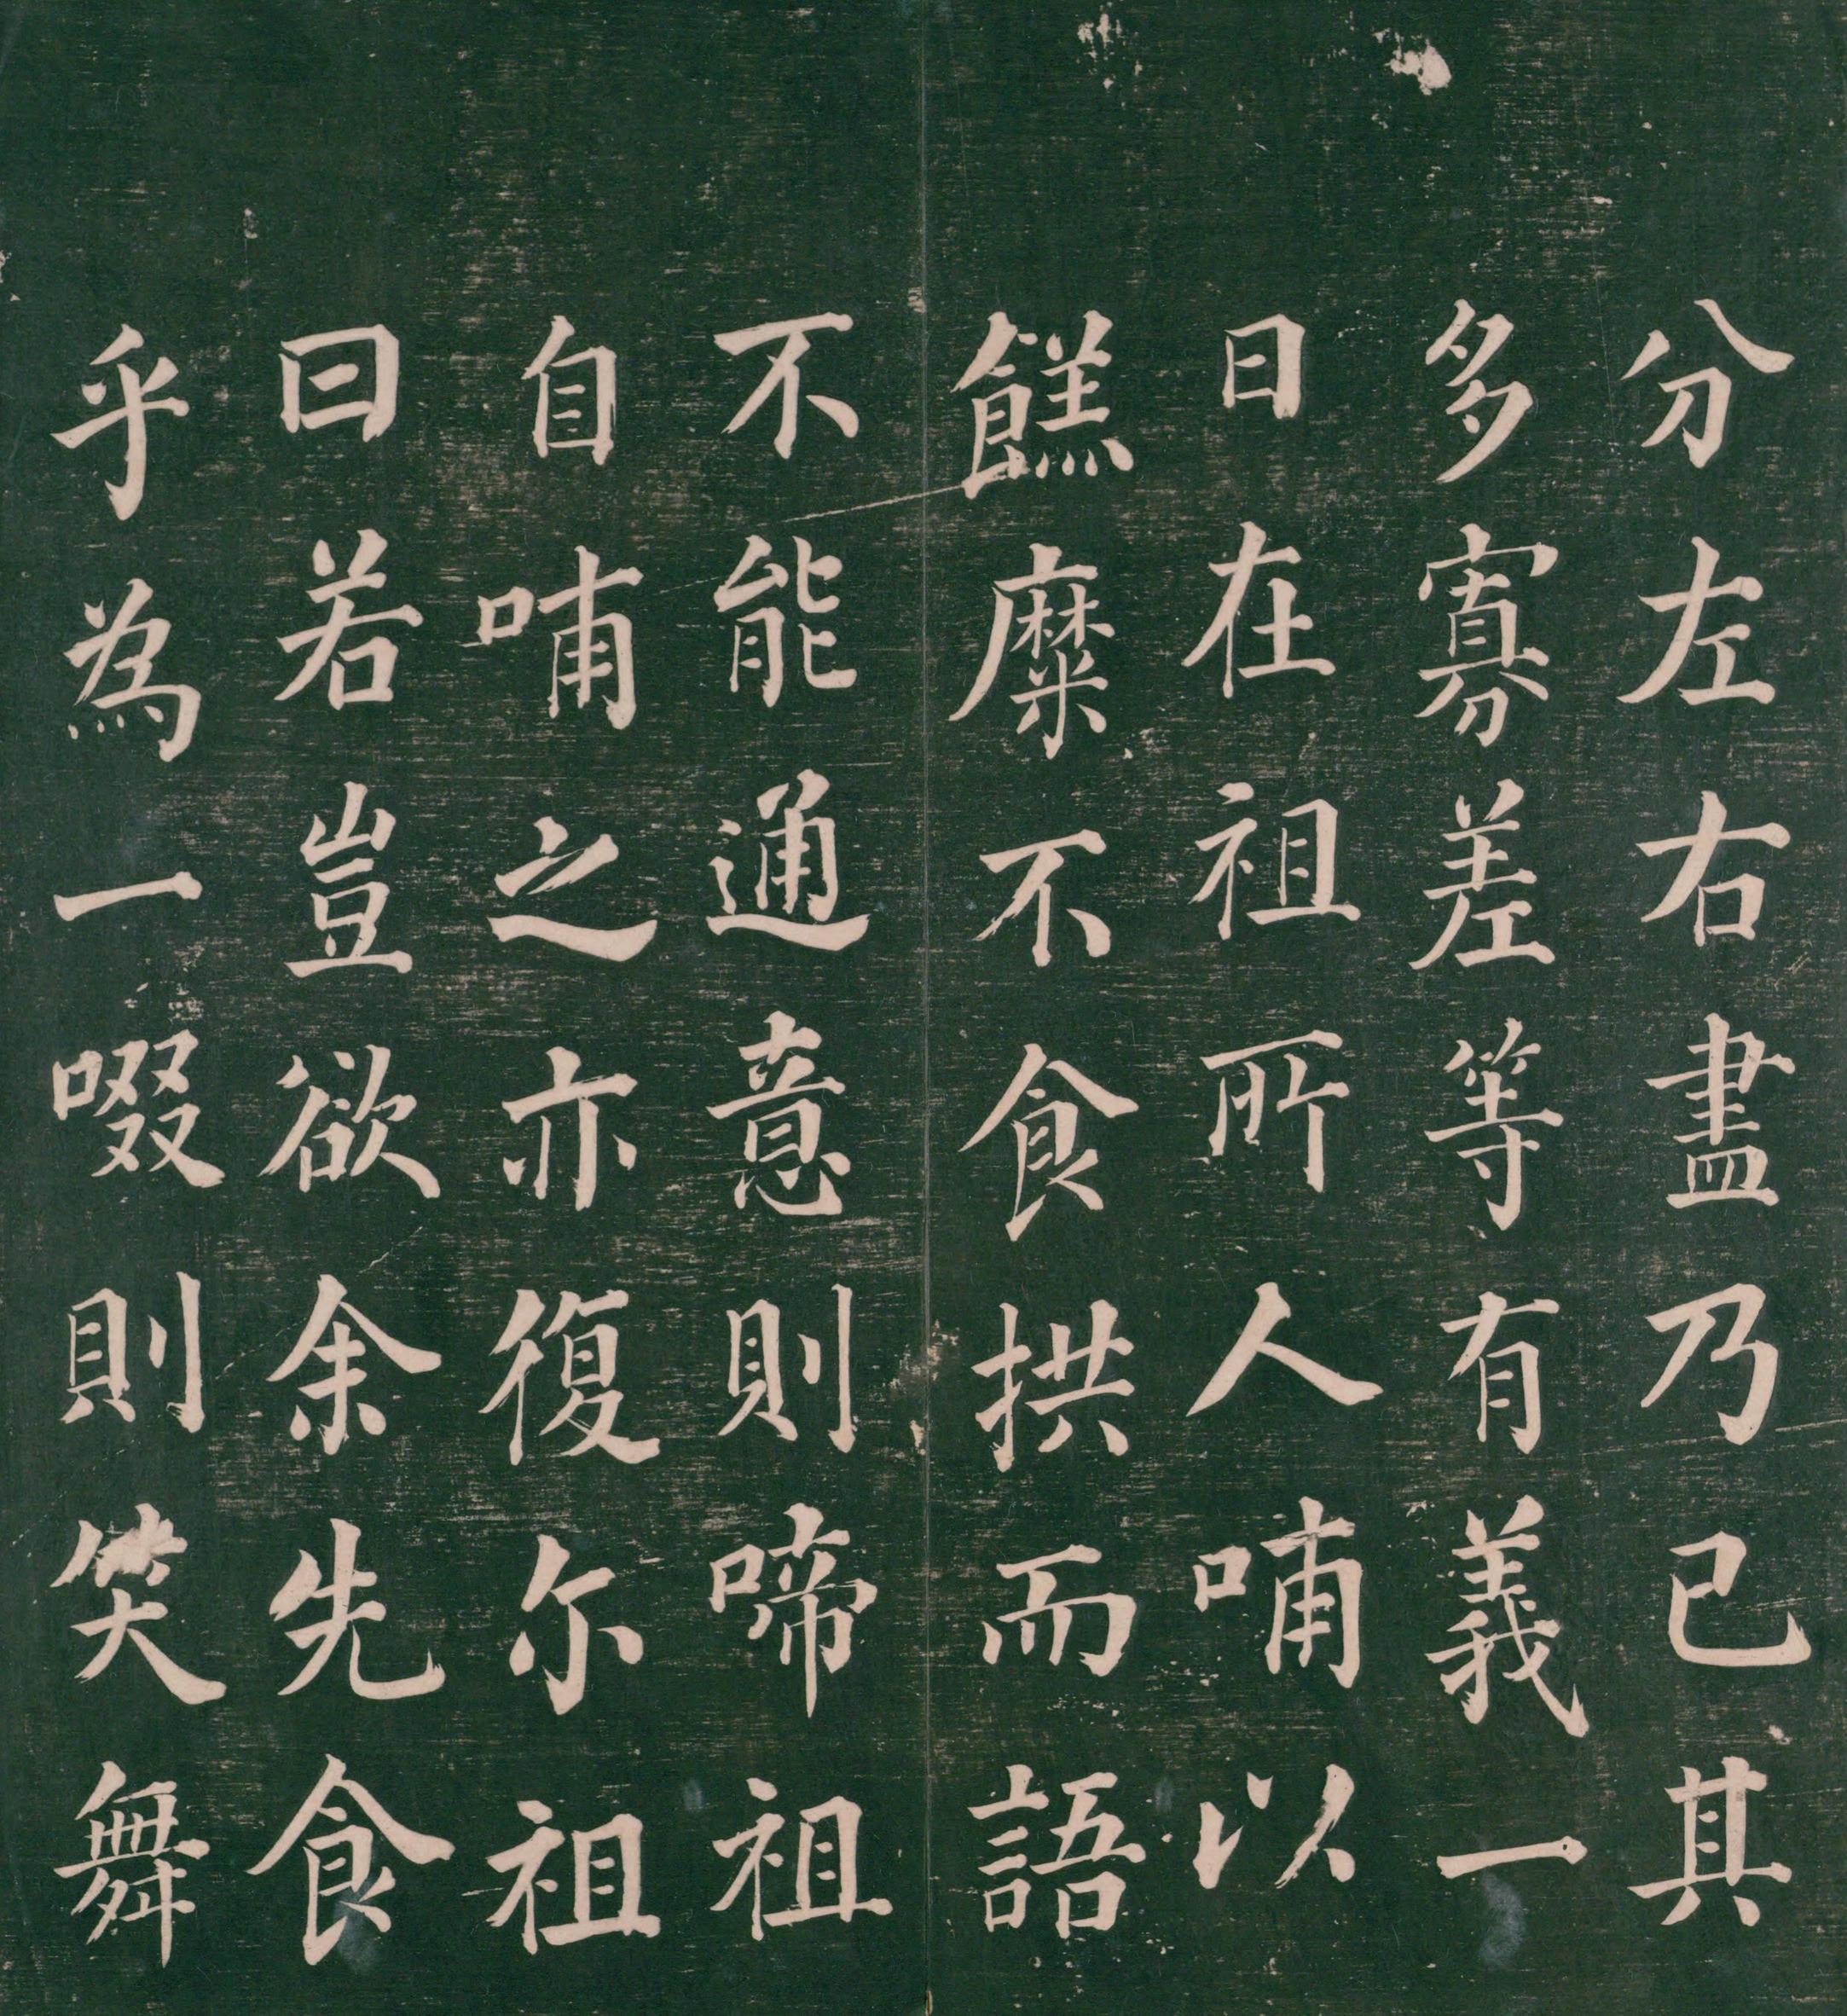 分左右盡乃已其
多寡差等有義一
日在祖所人哺以
餻糜不食拱而語
不能通意則啼祖
自哺之亦復尔祖
曰若豈欲余先食
乎為一啜則笑舞